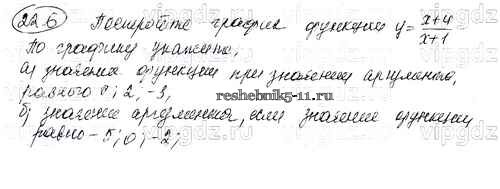 22.6 Постройте график функции y = x+4/x+1
По графику укажите,
а) значения функции при значении аргумента,
равного 0; 2; -3,
reshebnik5-11.ru
б) значение аргумента, если значение функции
равно - 5; 0; -2;